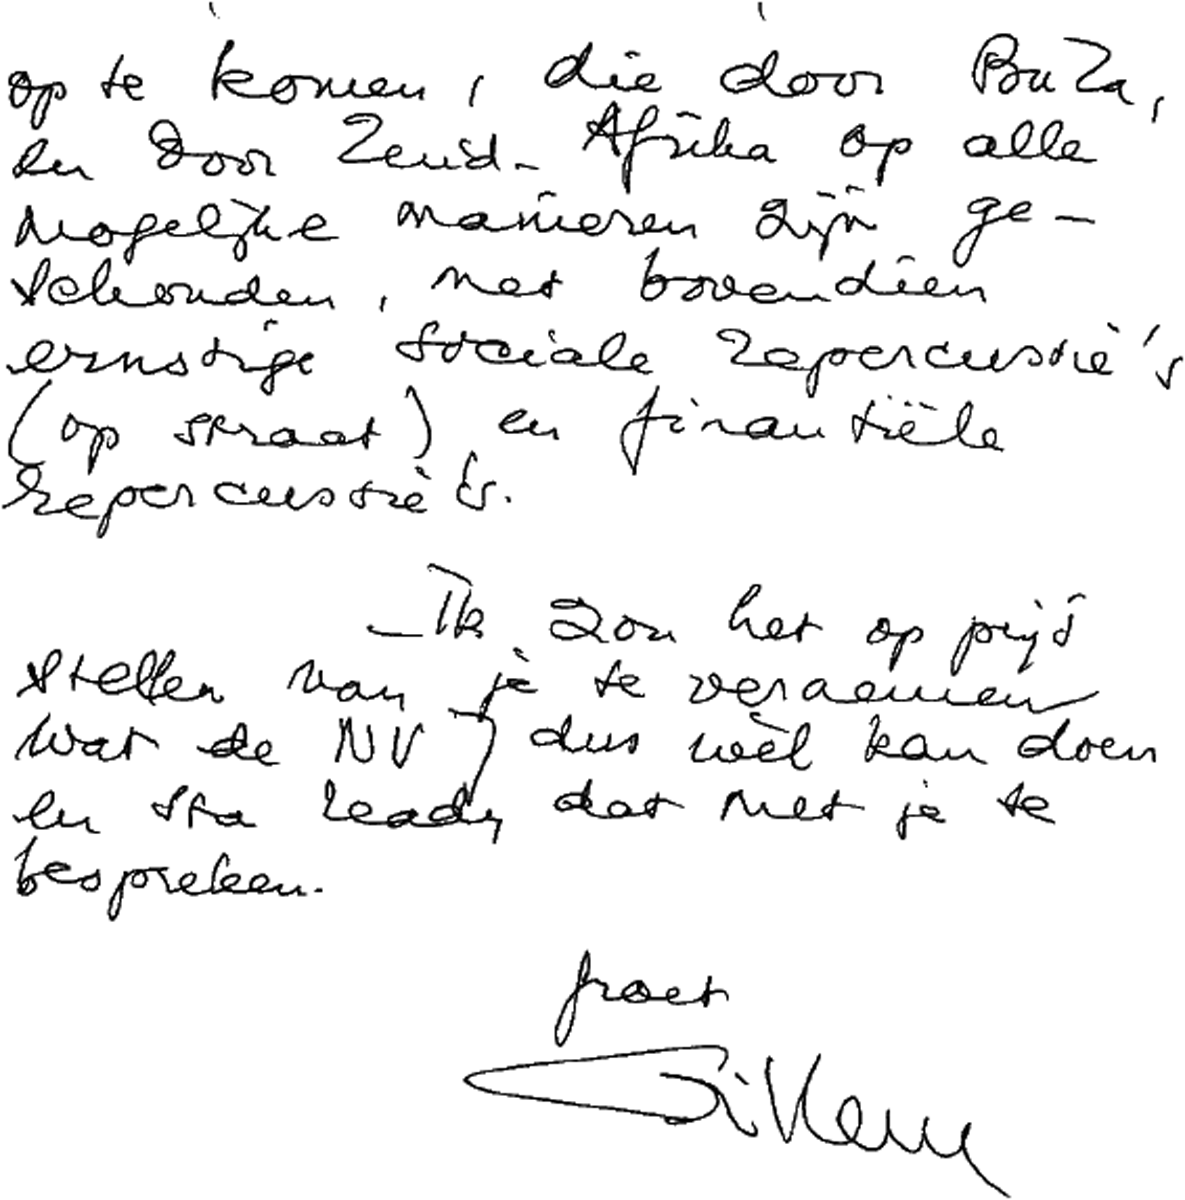 op te komen, die door BuZa,
en door Zuid-Afrika op alle
mogelijke manieren zijn ge-
schonden, met bovendien
ernstige sociale repercussie's
(op straat) en financiële
repercussie's.
Ik zou het op prijs
stellen van je te vernemen
wat de NVJ dus wèl kan doen
en sta ready dat met je te
bespreken.
groet